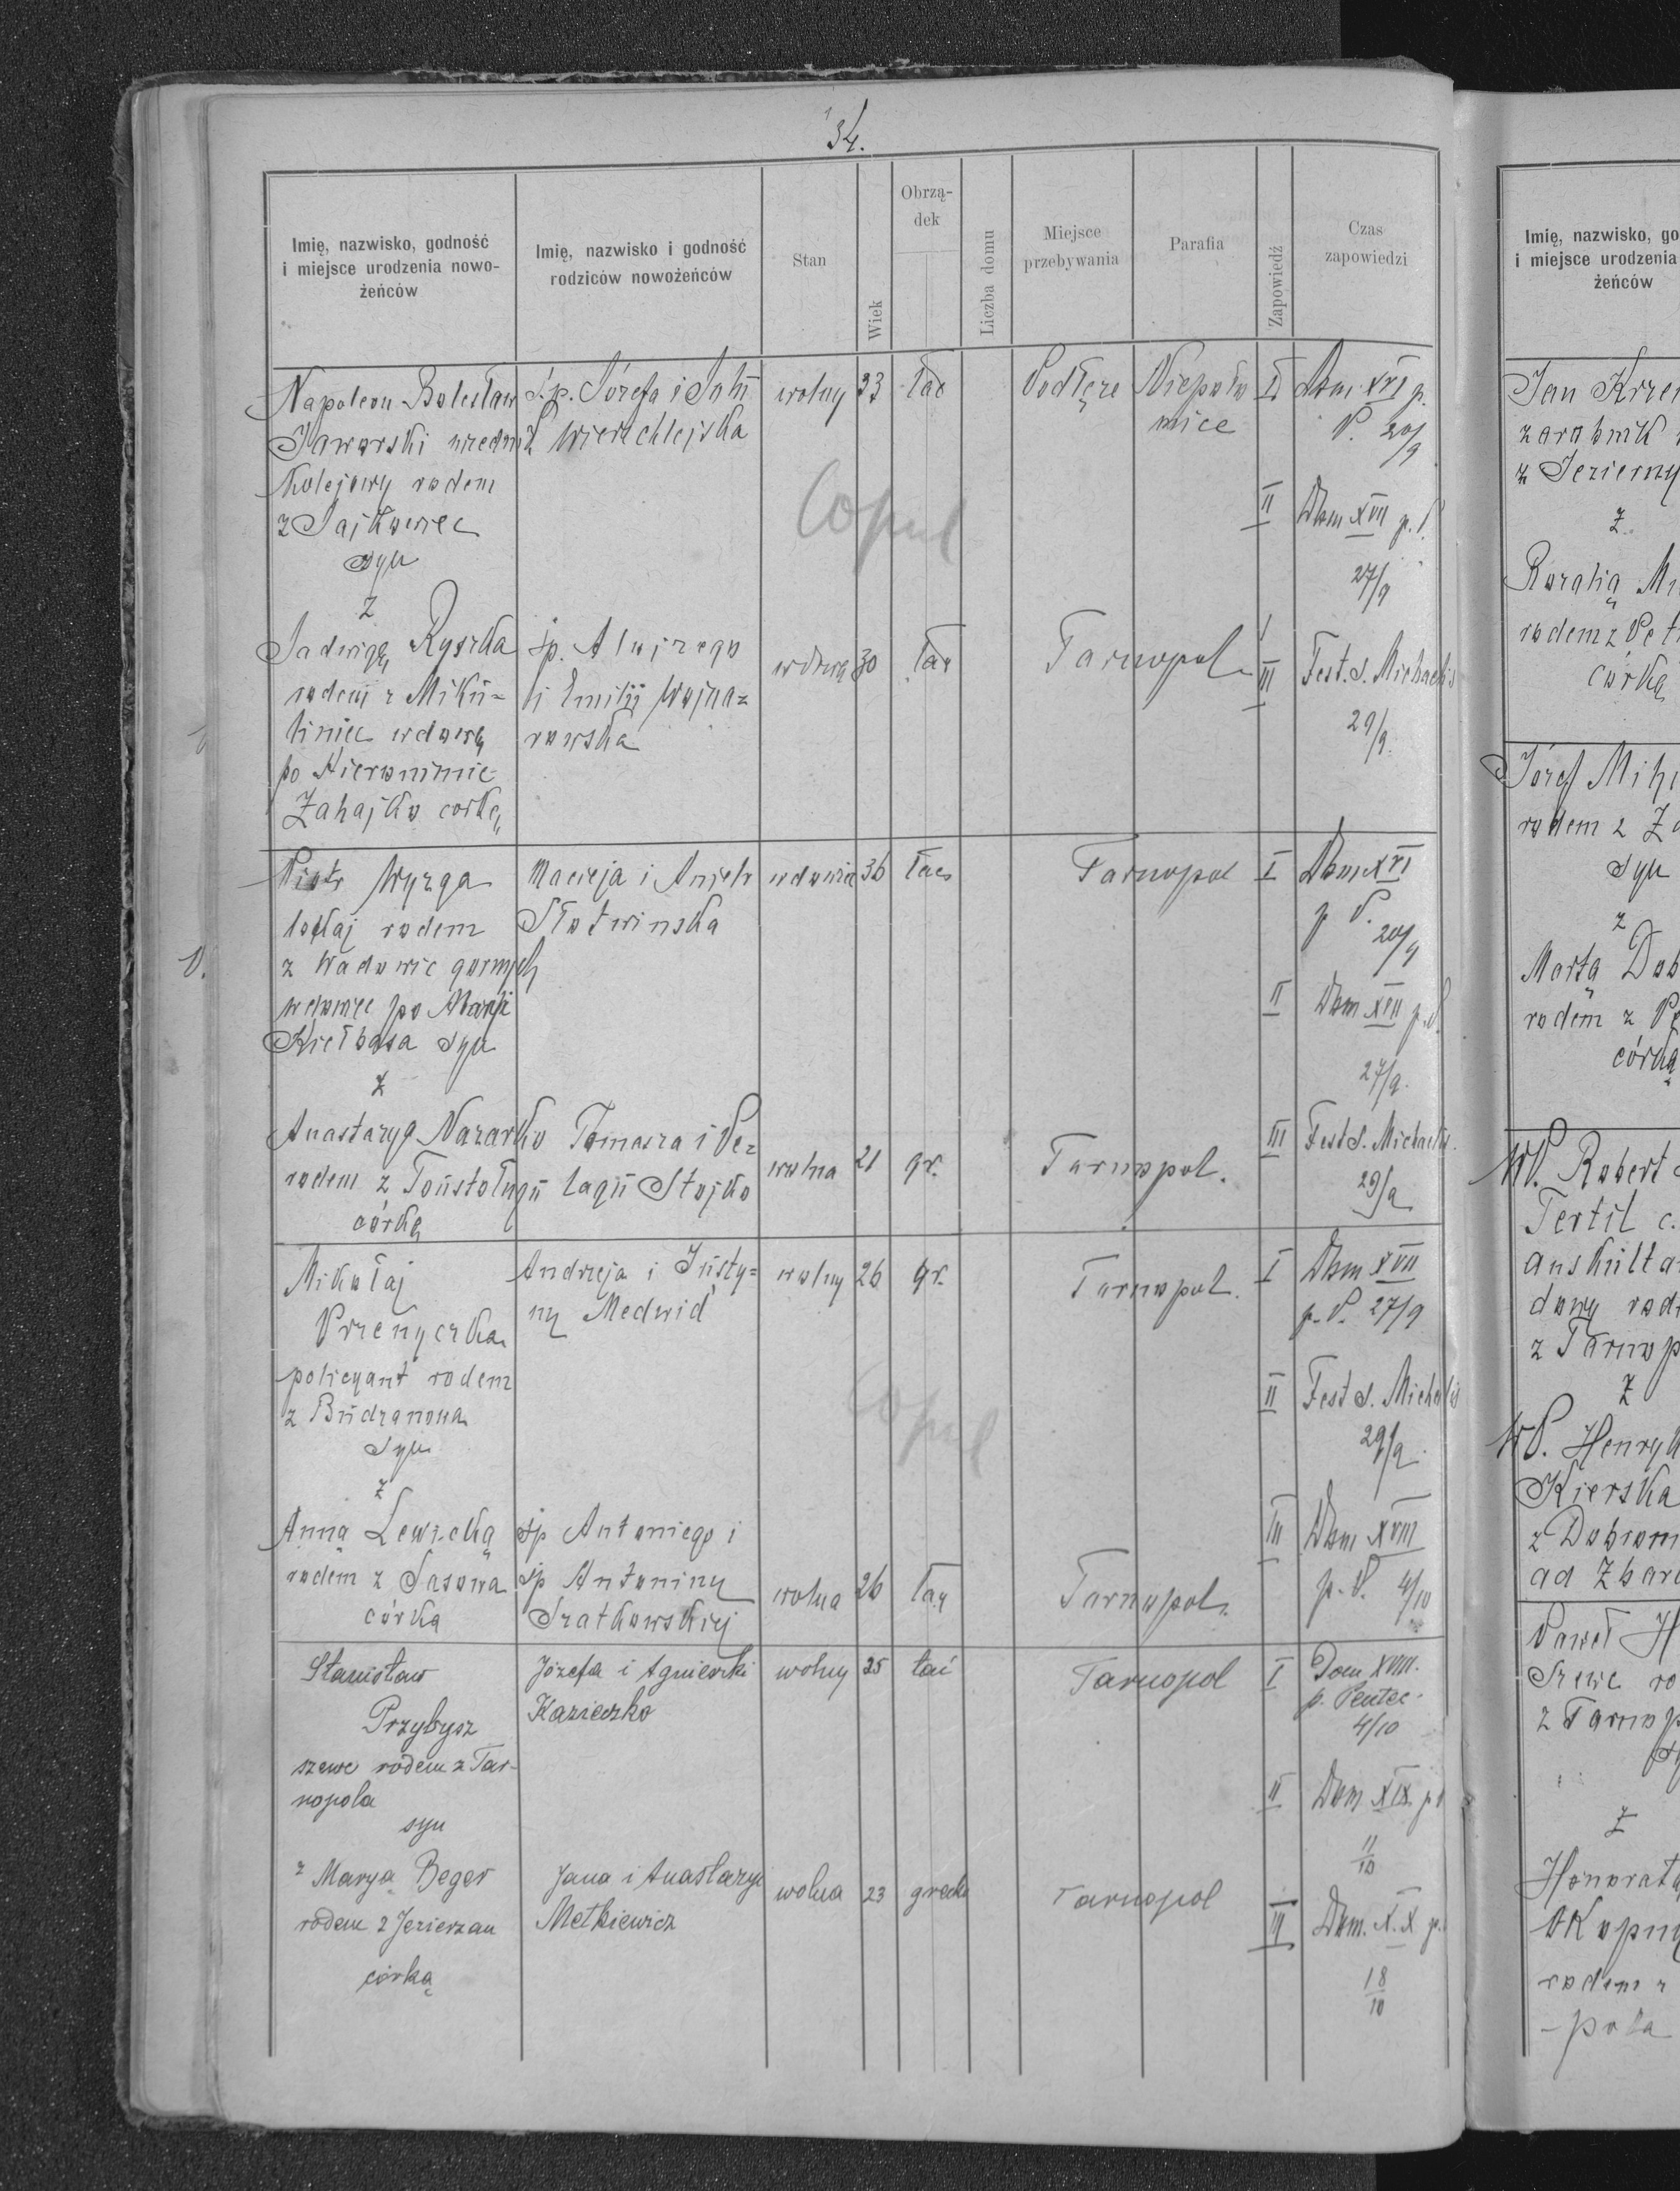 34.
Imię, nazwisko, godność
i miejsce urodzenia nowo-
żeńców
Imię, nazwisko i godność
rodziców nowożeńców
Stan
Wiek
Obrzą-
dek
Liczba domu
Miejsce
przebywania
Parafia
Zapowiedź
Czas
zapowiedzi
Napoleon Bolesław
Jaworski urzędn
kolejowy rodem
z Sajkowiec
syn
z
ś.p. Józefa i Julii
z Wierzchlejska
wolny
33
łac
Podłęże
Niepoło
mice
I
Dom XVI p.
P. 20/9
II
Dom XVII p. P.
27/9
Copul
Jadwigą Ryszka
rodem z Miku=
liniec wdową
po Hieronimie
Zahajko córką
śp. Alojzego
i Emilii Wojna=
rowska
wdowa
30
łac
Tarnopol
III
Fest. S. Michaelis
29/9.
Piotr Wyzga
lokaj rodem
z Wadowic gornych
wdowiec po Maryi
Kiełbasa syn
z
Macieja i Anieli
Słotwinska
wdowiec
36
łac
Tarnopol
I
Dom XVI
p P.
20/9
II
Dom XVII p.P.
27/9.
V.
Anastazyą Nazarko
rodem z Toustoługu
córką
Tomasza i Pe=
lagii Stojko
wolna
21
gr.
Tarnopol.
III
Fest S. Michaelis.
29/9
Mikołaj
Przenyczka
policyant rodem
z Budzanowa
syn
z
Andrzeja i Justy=
ny Medwid
wolny
26
gr.
Tarnopol.
I
Dom XVII
p. P. 27/9
II
Fest S. Michaelis
29/9.
Copul
Anną Lewicką
rodem z Sasowa
córką
śp Antoniego i
śp Antoniny
Szatkowskiej
wolna
26
łac
Tarnopol.
III
Dom XVIII
p. P. 4/10
Stanisław
Przybysz
szewc rodem z Tar-
nopola
syn
Józefa i Agnieszki
Kazieczko
wolny
25
łać
Tarnopol
I
Dom XVIII.
p. Pentec.
4/10
II
Dom XIX. p
11/10
z Maryą Beger
rodem z Jezierzan
córką
Jana i Anastazyi
Metkiewicz
wolna
23
grecko
Tarnopol
III
Dom. XX p.
18/10
Imię, nazwisko, go
i miejsce urodzenia
żeńców
Jan Krze
zarobnik
z Jezierny
z
Rozalią
rodem z Pet
córką
Józef
rodem z Za
syn
z
Martą Dob
rodem z
córką
WP. Robert
Tertil c.
auskulta
dowy rod
z Tarnop
z
WP. Henryk
Kierska
z Dobrom
ad Zbar
Paweł H
szewc ro
z Tarnop
z
Honorat
rodem
-pola